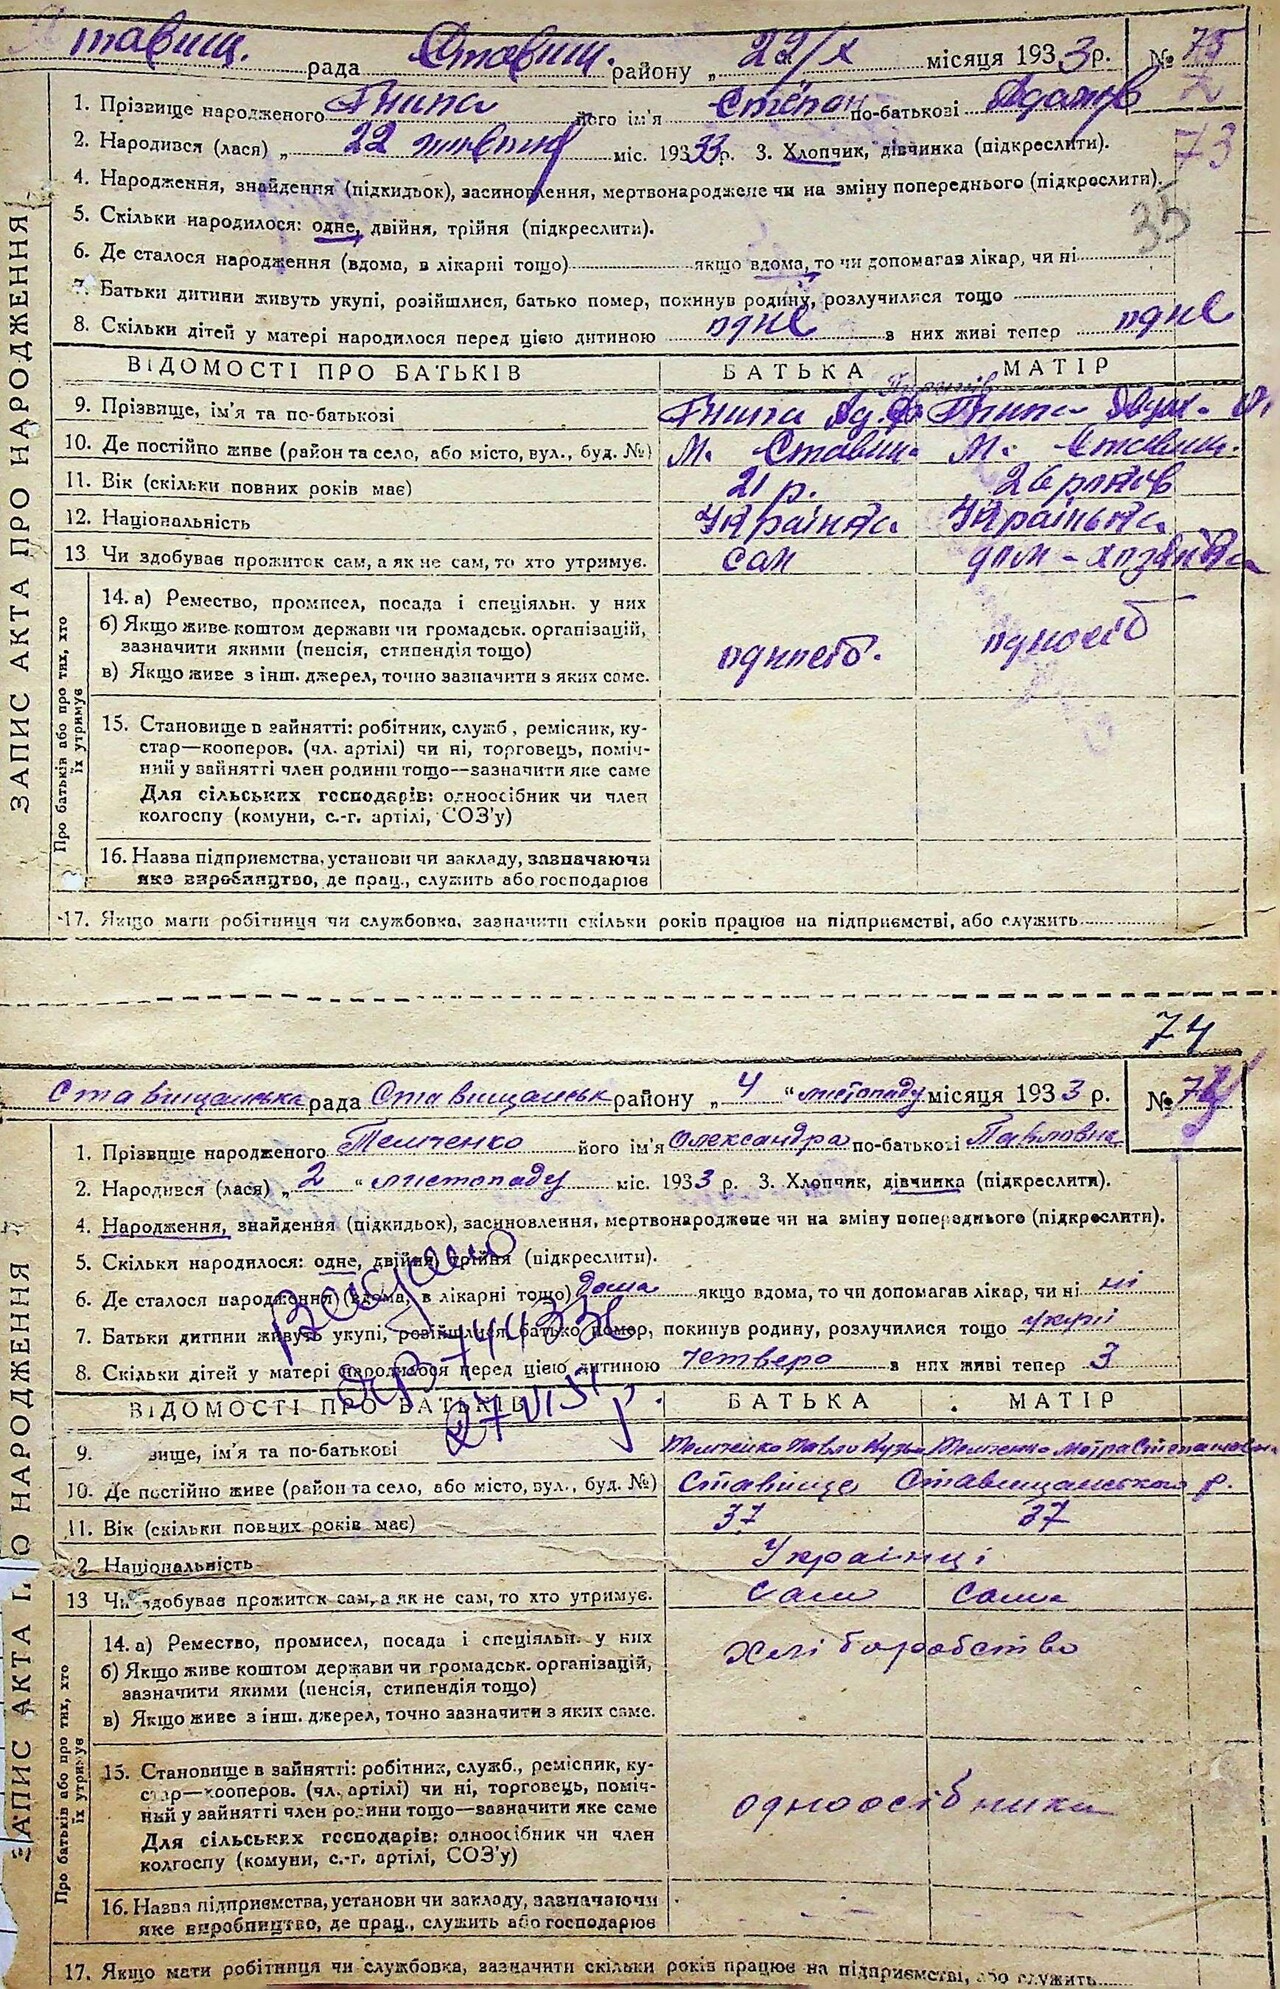 Ставищ. рада Ставищ. району „ 22/X місяця 1933 р. № 75
73
35
1. Прізвище народженого Гнипа його ім'я Степан по-батькові Адамов
2. Народився (лася) „ 22 жовтня міс. 1933 р. 3. Хлопчик, дівчинка (підкреслити).
4. Народження, знайдення (підкидьок), засиновлення, мертвонароджене чи на зміну попереднього (підкреслити).
5. Скільки народилося: одне, двійня, трійня (підкреслити).
6. Де сталося народження (вдома, в лікарні тощо) якщо вдома, то чи допомагав лікар, чи ні
7. Батьки дитини живуть укупі, розійшлися, батько помер, покинув родину, розлучилися тощо
8. Скільки дітей у матері народилося перед цією дитиною одне в них живі тепер одне
ЗАПИС АКТА ПРО НАРОДЖЕННЯ
ВІДОМОСТІ ПРО БАТЬКІВ БАТЬКА МАТІР
9. Прізвище, ім'я та по-батькові Гнипа Ад. Гнипа
10. Де постійно живе (район та село, або місто, вул., буд. №) М. Ставищ. М. Ставищ.
11. Вік (скільки повних років має) 21 р. 26 років
12. Національність Українка Українка
13 Чи здобуває прожиток сам, а як не сам, то хто утримує. сам дом-хозяйка
Про батьків або про тих, хто їх утримує
14. а) Ремество, промисел, посада і спеціяльн. у них
б) Якщо живе коштом держави чи громадськ. організацій,
зазначити якими (пенсія, стипендія тощо) одноосіб. одноосіб
в) Якщо живе з інш. джерел, точно зазначити з яких саме.
15. Становище в зайнятті: робітник, служб., ремісник, ку-
стар—кооперов. (чл. артілі) чи ні, торговець, поміч-
ний у зайнятті член родини тощо—зазначити яке саме
Для сільських господарів: одноосібник чи член
колгоспу (комуни, с.-г. артілі, СОЗ'у)
16. Назва підприємства, установи чи закладу, зазначаючи
яке виробництво, де прац., служить або господарює
17. Якщо мати робітниця чи службовка, зазначити скільки років працює на підприємстві, або служить
74
Ставищанська рада Ставищанськ району „ 4 “ листопаду місяця 1933 р. №
1. Прізвище народженого Темченко його ім'я Олександра по-батькові Павловна
2. Народився (лася) „ 2 “ листопаду міс. 1933 р. 3. Хлопчик, дівчинка (підкреслити).
4. Народження, знайдення (підкидьок), засиновлення, мертвонароджене чи на зміну попереднього (підкреслити).
5. Скільки народилося: одне, двійня, трійня (підкреслити).
6. Де сталося народження (вдома, в лікарні тощо) дома якщо вдома, то чи допомагав лікар, чи ні ні
7. Батьки дитини живуть укупі, розійшлися, батько помер, покинув родину, розлучилися тощо укупі
8. Скільки дітей у матері народилося перед цією дитиною четверо в них живі тепер 3
27 VI 51 р.
ЗАПИС АКТА ПРО НАРОДЖЕННЯ
ВІДОМОСТІ ПРО БАТЬКІВ БАТЬКА МАТІР
9. вище, ім'я та по-батькові Темченко Павло Кузьм Темченко Мотра Степановна
10. Де постійно живе (район та село, або місто, вул., буд. №) Ставище Ставищанського р.
11. Вік (скільки повних років має) 37 37
2 Національність Українці
13 Чи здобуває прожиток сам, а як не сам, то хто утримує. сам сама
Про батьків або про тих, хто їх утримує
14. а) Ремество, промисел, посада і спеціяльн. у них Хліборобство
б) Якщо живе коштом держави чи громадськ. організацій,
зазначити якими (пенсія, стипендія тощо)
в) Якщо живе з інш. джерел, точно зазначити з яких саме.
15. Становище в зайнятті: робітник, служб., ремісник, ку-
стар—кооперов. (чл. артілі) чи ні, торговець, поміч-
ний у зайнятті член родини тощо—зазначити яке саме одноосібники
Для сільських господарів: одноосібник чи член
колгоспу (комуни, с.-г. артілі, СОЗ'у)
16. Назва підприємства, установи чи закладу, зазначаючи
яке виробництво, де прац., служить або господарює
17. Якщо мати робітниця чи службовка, зазначити скільки років працює на підприємстві, або служить